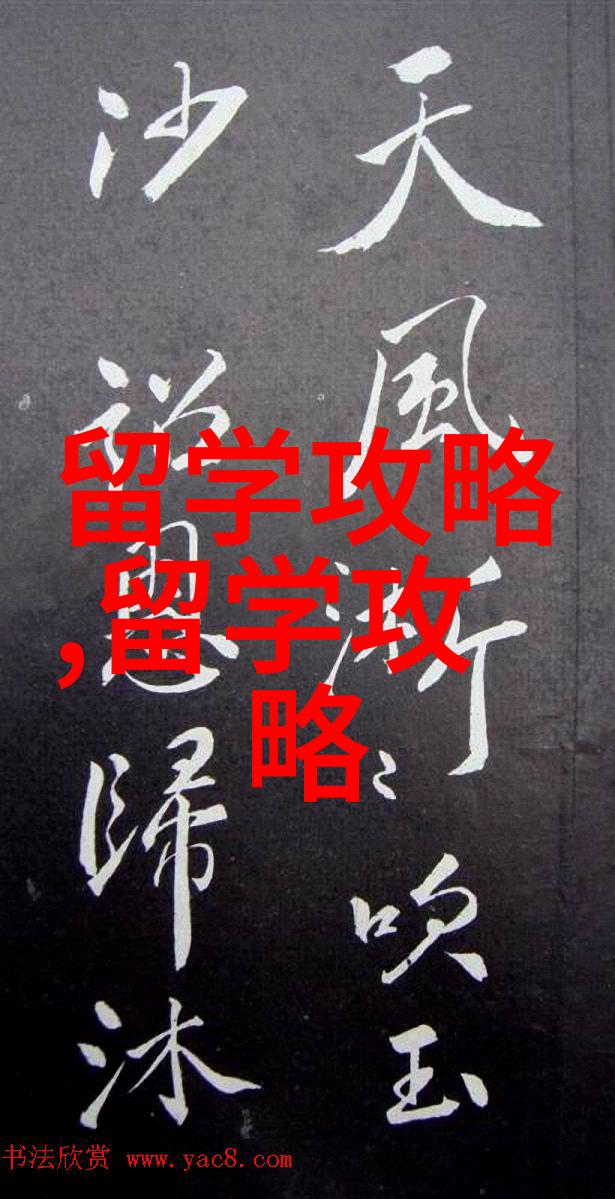 天風淅〻吹玉
沙詔恩歸沐
留学攻略
,留学攻
略
书法欣赏 www.yac8.com